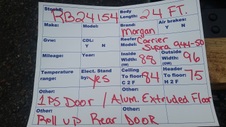 Stock#: RB24154 Body Length: 24 FT.
Make: Brand: Morgan Air brakes? Y N
Model:
Gvw: CDL: Y N Reefer Model: Carrier Supra 944-50
Mileage: Year: Inside Width: 88 Outside Width: 96
Temperature range: Elect. Stand by? yes Ceiling to Floor? 84 Header To floor? 75
1 PS Door / Alum. Extruded Floor
Roll up Rear DOOR